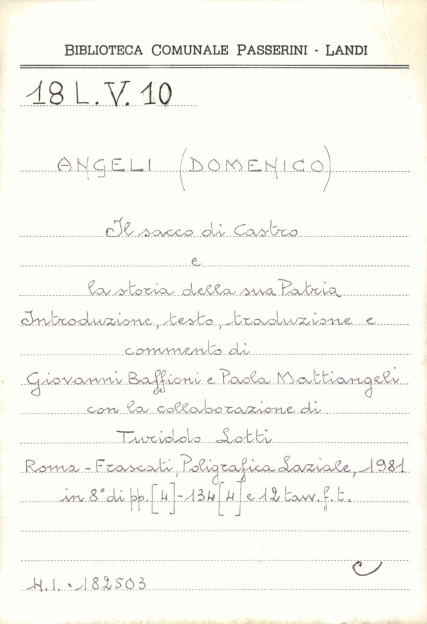 BIBLIOTECA COMUNALE PASSERINI - LANDI
18 L. V. 10
ANGELI (DOMENICO)
Il sacco di Castro
e
la storia della sua Patria
Introduzione, testo, traduzione e
commento di
Giovanni Baffioni e Paola Mattiangeli
con la collaborazione di
Turiddo Lotti
Roma - Frascati, Poligrafica Laziale, 1981
in 8° di pp. [4]-134[4] e 12 tavv. f. t.
C
N.I. = 182503